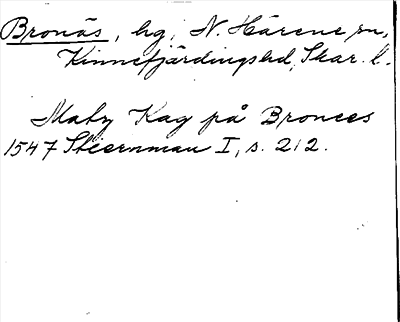 Bronäs, hg, N. Härene sn,
Kinnefjärdingshd, Skar. l.
Matz Kag på Bronees
1547 Stiernman I, s. 212.